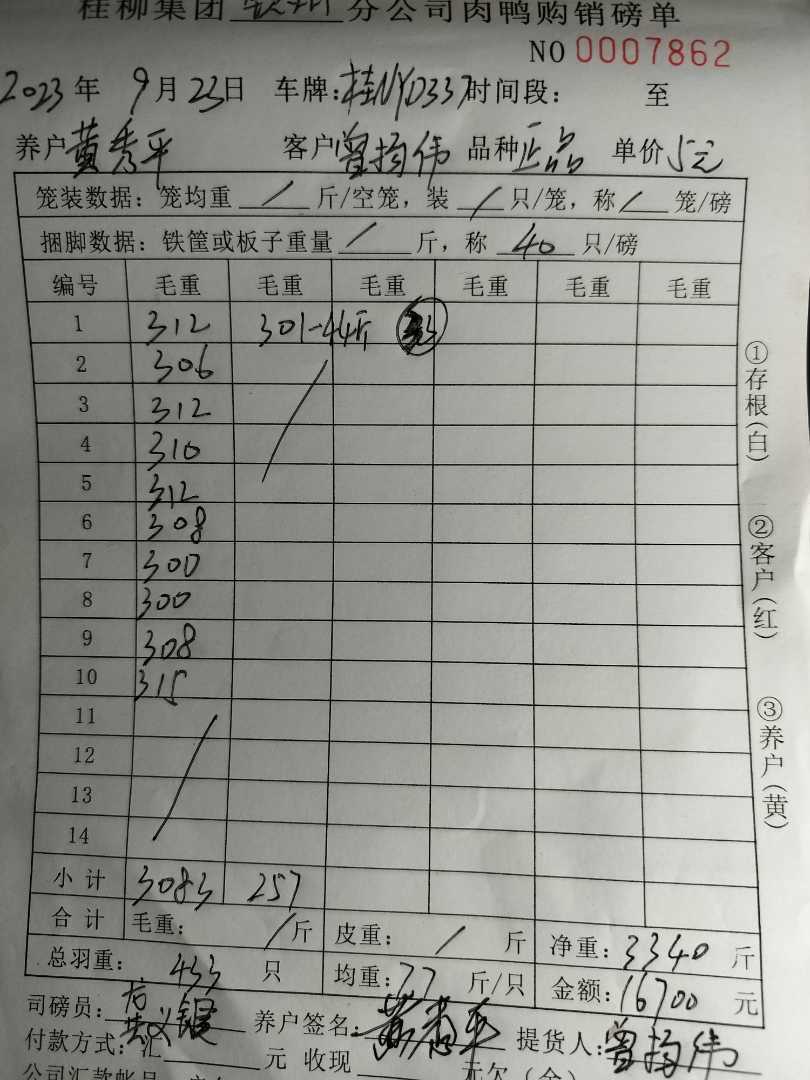 桂柳集团 钦州 分公司肉鸭购销磅单
NO 0007862
2023年 9月23日 车牌:桂NYD337 时间段: 至
养户 黄秀平 客户 曾扬伟 品种 正品 单价 5元
笼装数据: 笼均重 / 斤/空笼, 装 / 只/笼, 称 / 笼/磅
捆脚数据: 铁筐或板子重量 / 斤, 称 40 只/磅
编号 毛重 毛重 毛重 毛重 毛重 毛重
1 312 301-44斤
2 306
3 312
4 310
5 312
6 308
7 300
8 300
9 308
10 315
11
12
13
14
小计 3083 257
合计 毛重: / 斤 皮重: / 斤 净重: 3340 斤
总羽重: 433 只 均重: 7.7 斤/只 金额: 16700 元
司磅员: 养户签名: 黄秀平 提货人: 曾扬伟
付款方式:汇 元 收现 元欠(余)
公司汇款帐号
①存根(白)
②客户(红)
③养户(黄)